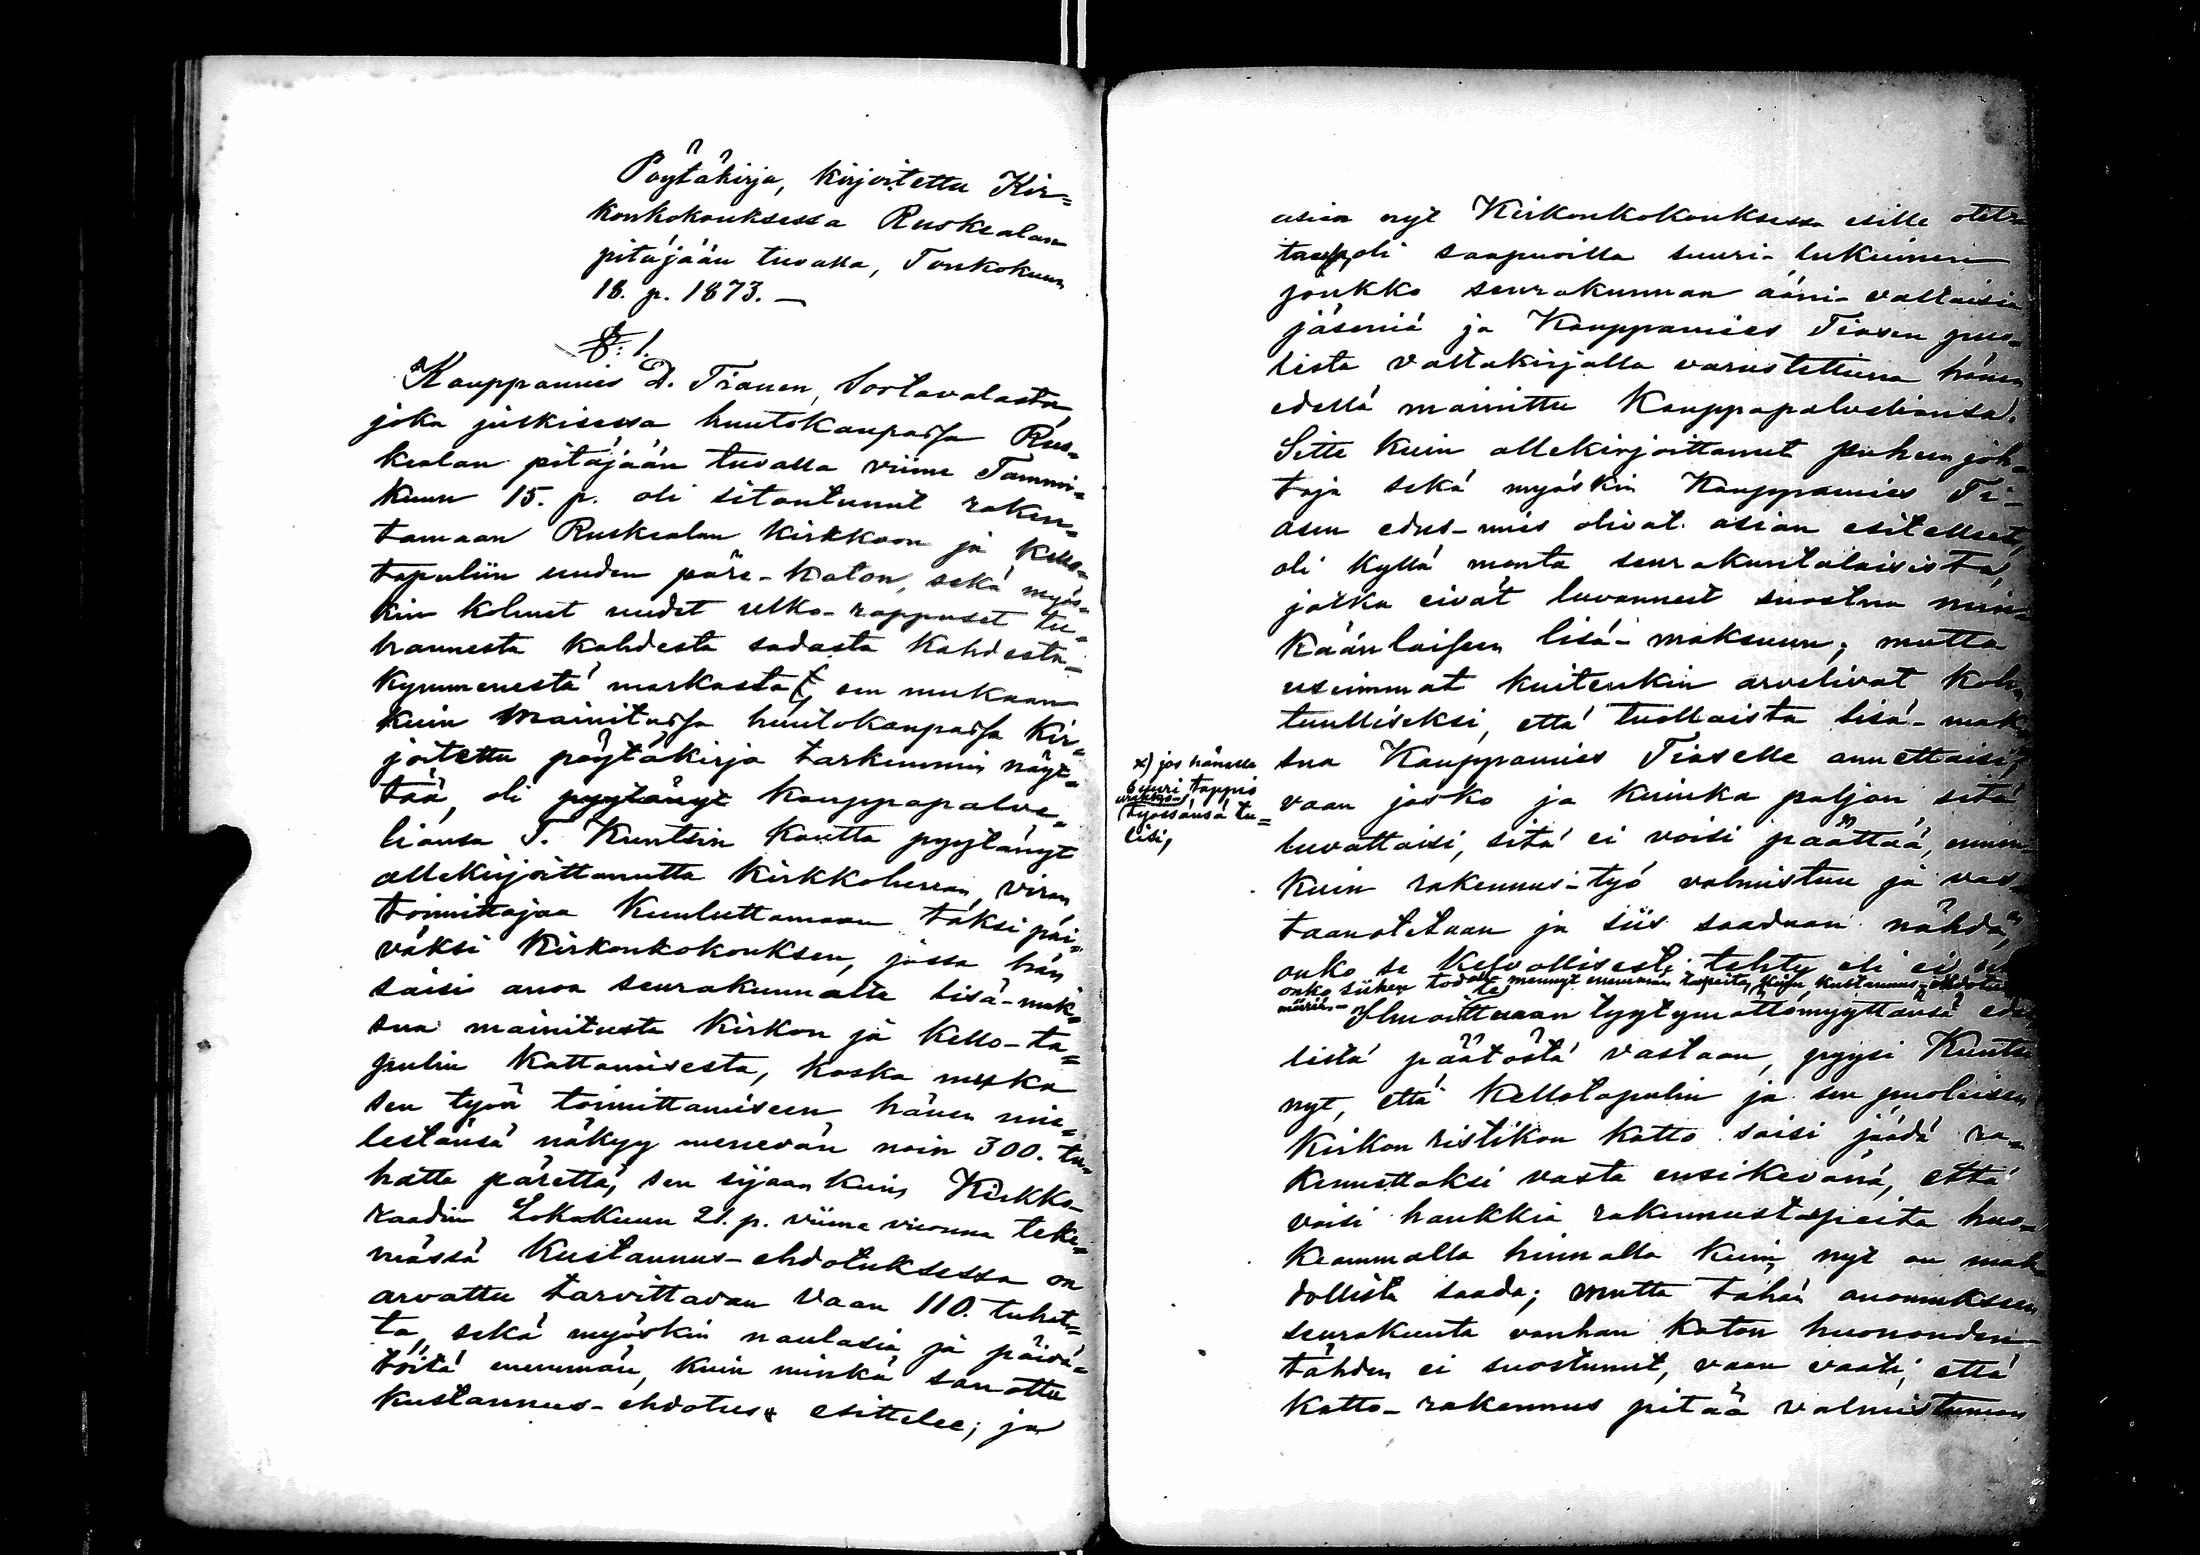 Pöytäkirja, kirjoitettu Kir=
konkokouksessa Ruskealan
pitäjään tuvalla, Toukokuun
18. p. 1873. —
§: 1.
Kauppamies D. Tianen, Sortavalasta,
joka julkisessa huutokaupassa Rus=
kealan pitäjään tuvalla viime Tammi=
kuun 15. p. oli sitoutunut raken=
tamaan Ruskealan kirkkoon ja kello=
tapuliin uuden päre-katon, sekä myös=
kin kolmet uudet ulko-rappuset tu=
hannesta kahdesta sadasta kahdesta=
kymmenestä markasta, sen mukaan
kuin mainitussa huutokaupassa kir=
joitettu pöytäkirja tarkemmin näyt=
tää, oli pyytänyt kauppapalve=
liansa T. Kuntsin kautta pyytänyt
allekirjoittanutta kirkkoherran viran
toimittajaa kuuluttamaan täksi päi=
väksi Kirkonkokouksen, jossa hän
saisi anoa seurakunnalta lisä-mak=
sua mainitusta kirkon ja kello-ta=
pulin kattamisesta, koska muka
sen työn toimittamiseen hänen mie=
lestänsä näkyy menevän noin 300. tu=
hatta pärettä, sen sijaan kuin Kirkko-
raadin Lokakuun 21. p. viime vuonna teke=
mässä kustannus-ehdotuksessa on
arvattu tarvittavan vaan 110. tuhat=
ta, sekä myöskin nauloja ja päivä=
töitä enemmän, kuin minkä sanottu
kustannus-ehdotus esittelee; ja
asian nyt Kirkonkokouksessa esille otet=
taissa, oli saapuvilla suuri-lukuinen
joukko seurakunnan ääni-valtaisia
jäseniä ja Kauppamies Tiasen puo=
lista valtakirjalla varustettuna hänen
edellä mainittu kauppapalveliansa.
Sitte kuin allekirjoittanut puheenjoh=
taja sekä myöskin Kauppamies Ti=
asen edus-mies olivat asian esitelleet,
oli kyllä monta seurakuntalaisista,
jotka eivät luvanneet suostua min=
käänlaiseen lisä-maksuun; mutta
useimmat kuitenkin arvelivat koh=
tuulliseksi, että tuollaista lisä-mak=
sua Kauppamies Tiaselle annettaisi,
x) jos hänelle
suuri tappio
urakka=
työssänsä tu=
lisi,
vaan josko ja kuinka paljon sitä
luvattaisi, sitä ei voisi päättää, ennen
kuin rakennus-työ valmistuu ja vas=
taanotetaan ja siis saadaan nähdä,
onko se kelvollisesti tehty eli ei
onko siihen todella mennyt enemmän tarpeita, kuin kustannus-ehdotus
määrää. — Ilmoittaen tyytymättömyyttänsä edel=
listä päätöstä vastaan, pyysi Kuntsi
nyt, että kellotapulin ja sen puoleisen
kirkon ristikon katto saisi jäädä ra=
kennettaksi vasta ensikevänä, että
voisi hankkia rakennustarpeita huo=
keammalla hinnalla kuin nyt on mah=
dollista saada; mutta tähän anomukseen
seurakunta vanhan katon huonouden
tähden ei suostunut, vaan vaati, että
katto-rakennus pitää valmistuman